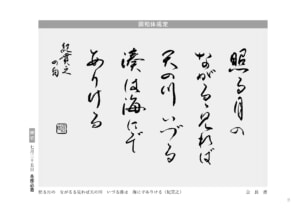 照る月の
ながるゝ見れば
天の川 いづる
湊は海にぞ
ありける
紀貫之
の句
照る月の ながるる見れば天の川 いづる湊は 海にぞありける(紀貫之)